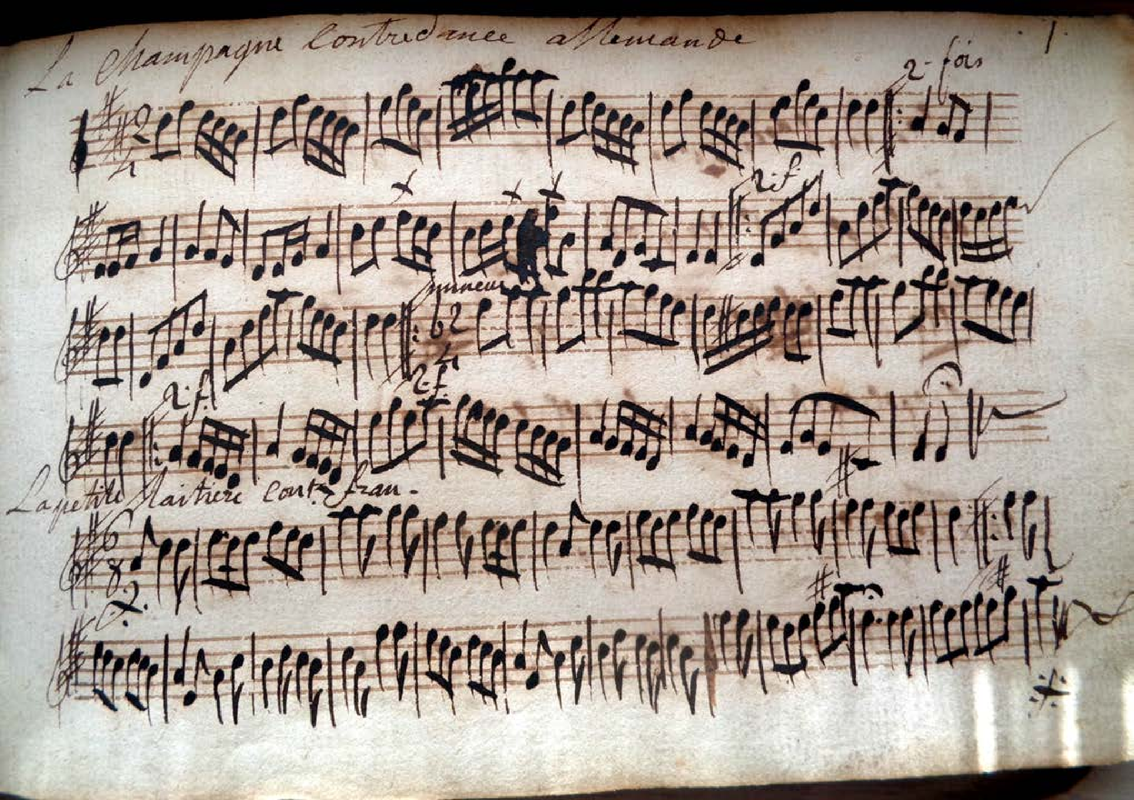 La Champagne Contredance allemande 1.
2 fois
2 4
2. f
mineur
2 4
2. f.
2. f
La petite Maitrere Cont. fran.
6 8
2.